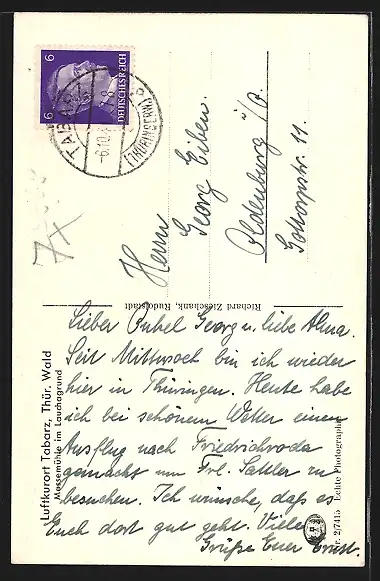 6 6
DEUTSCHES REICH
TABARZ
-6.10.
(THÜRINGERW.)
7x
Herrn
Georg Eiben.
Oldenburg i/O.
Gottorpstr. 11.
Richard Zieschank, Rudolstadt
Luftkurort Tabarz, Thür. Wald
Massemühle im Lauchagrund
Lieber Onkel Georg u. liebe Alma.
Seit Mittwoch bin ich wieder
hier in Thüringen. Heute habe
ich bei schönem Wetter einen
Ausflug nach Friedrichroda
gemacht um Frl. Sattler zu
besuchen. Ich wünsche, daß es
Euch dort gut geht. Viele
Grüße Euer Ernst.
Nr. 2/7415 Echte Photographie